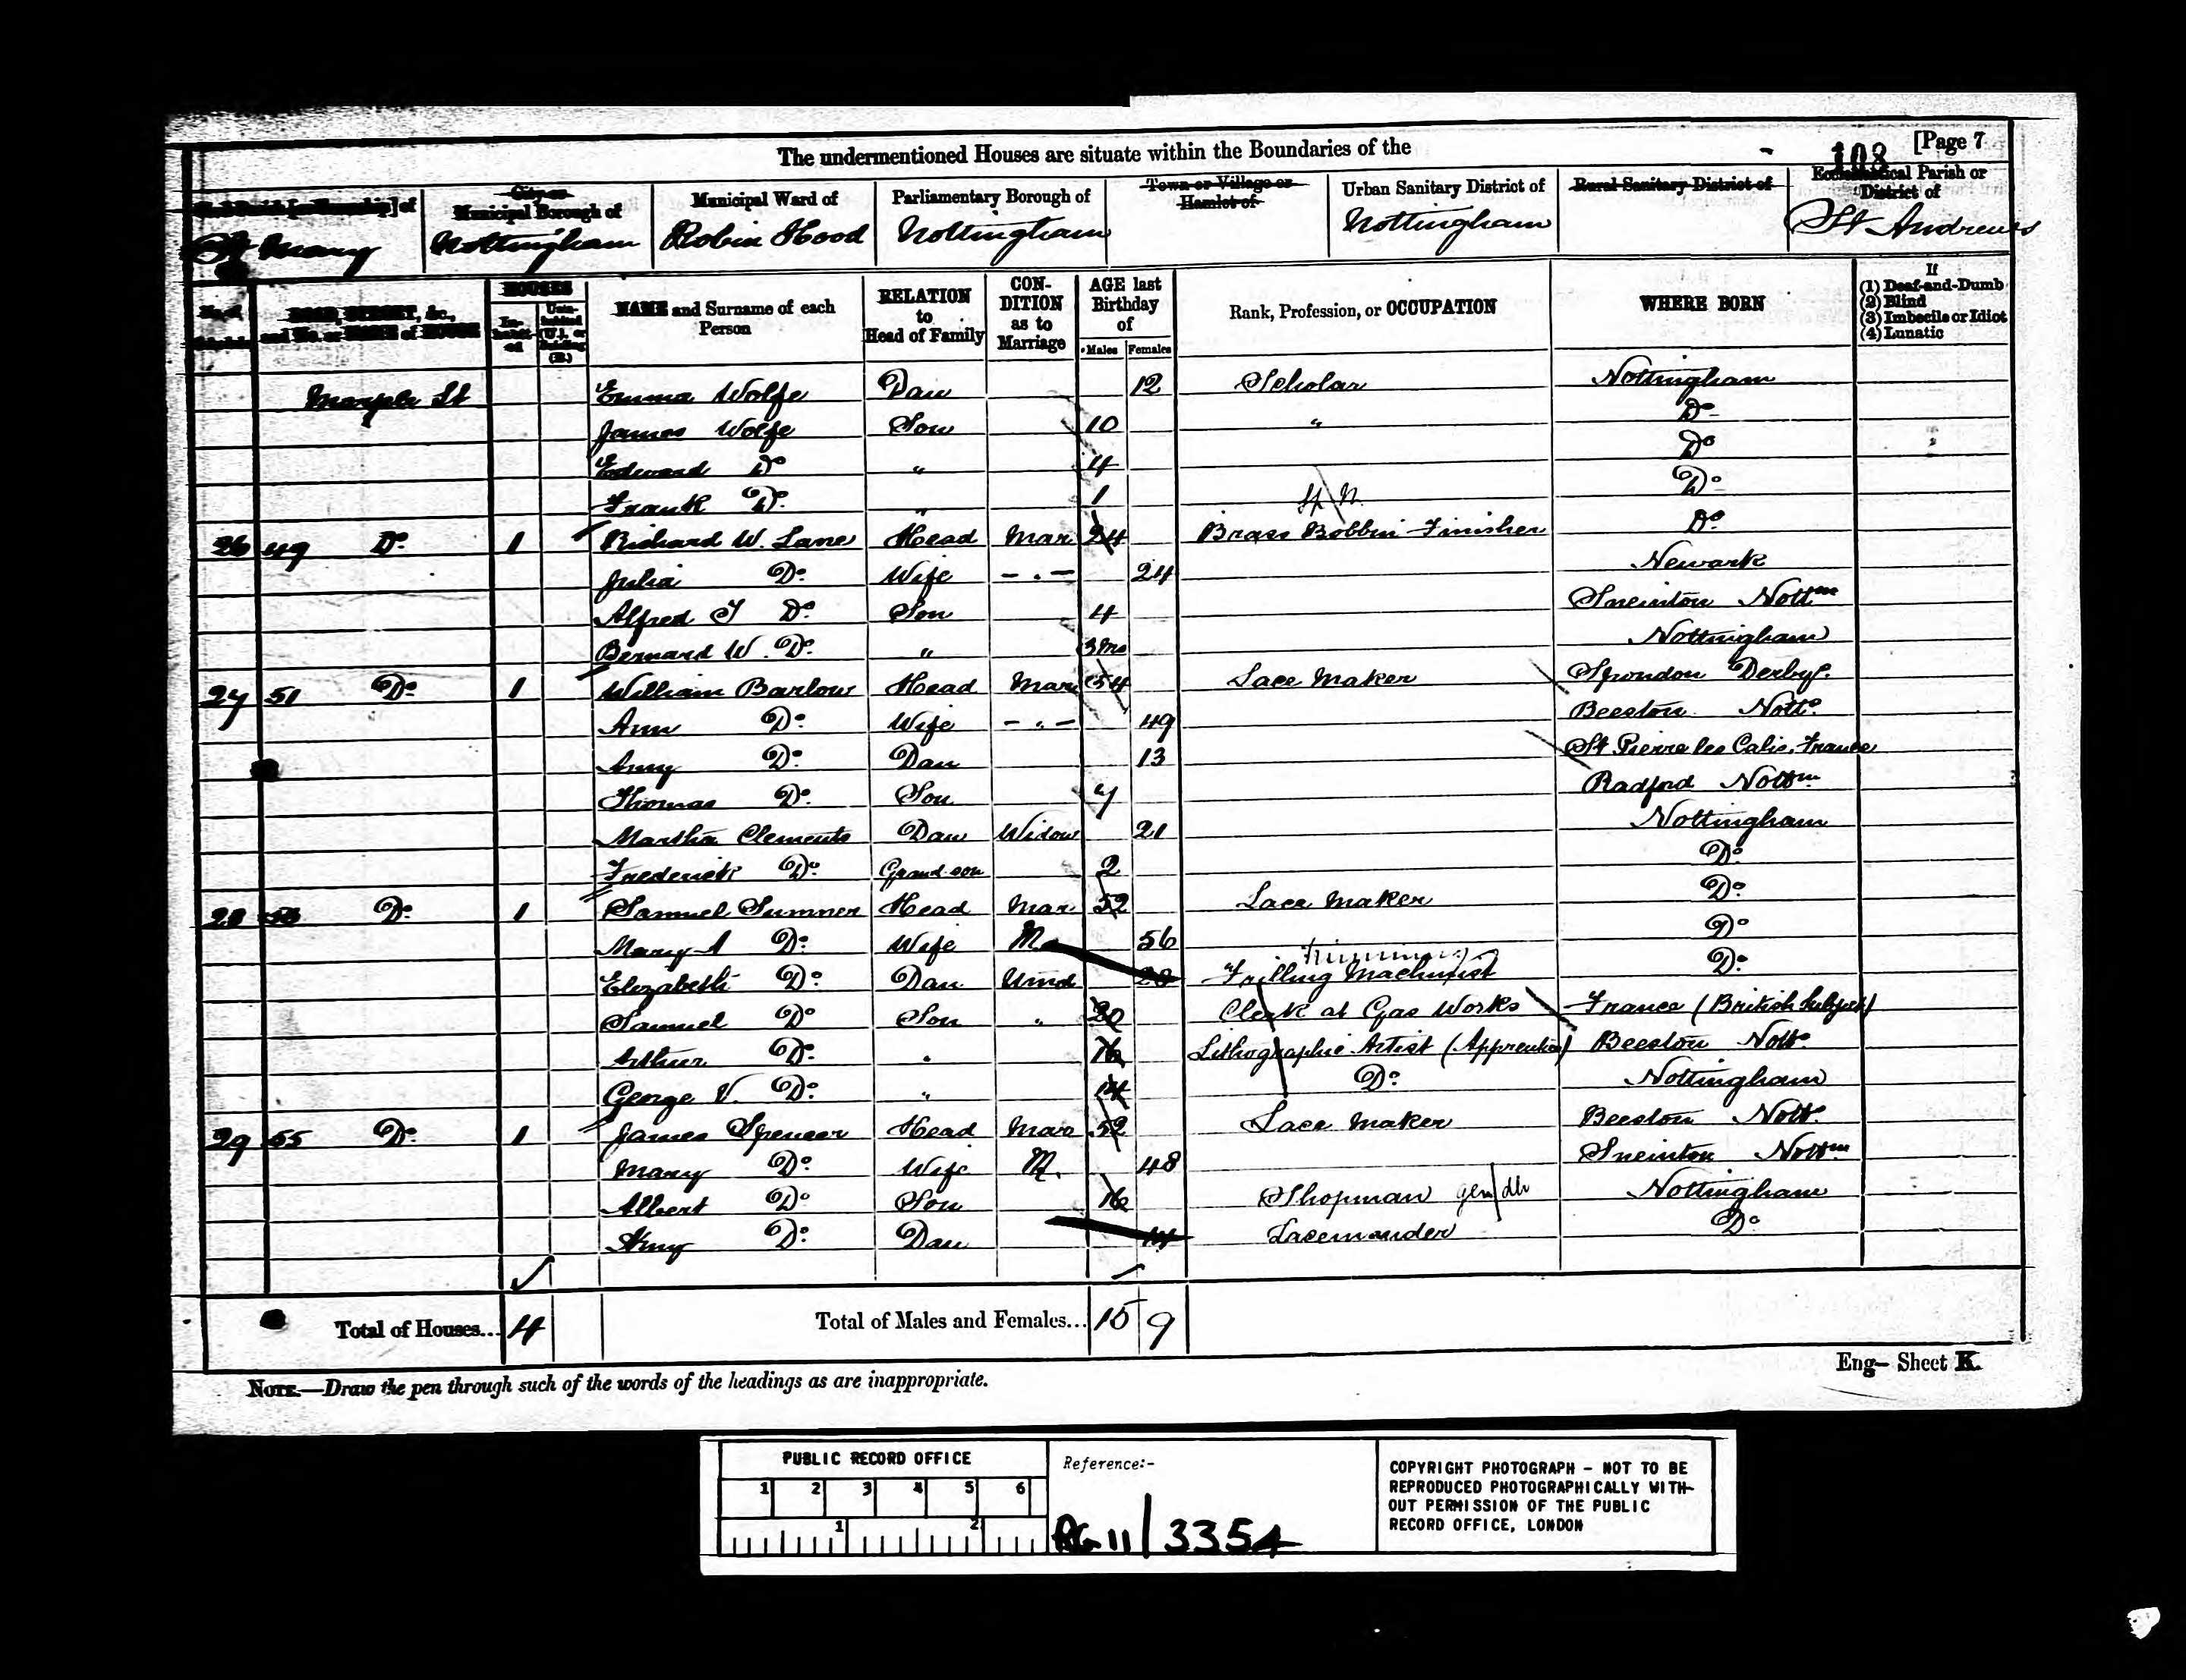 The undermentioned Houses are situate within the Boundaries of the
108 [Page 7
Civil Parish [or Township] of
City or Municipal Borough of
Municipal Ward of
Parliamentary Borough of
Town or Village or Hamlet of
Urban Sanitary District of
Rural Sanitary District of
Ecclesiastical Parish or District of
St Mary Nottingham Robin Hood Nottingham Nottingham St Andrews
No. of Schedule
ROAD, STREET, &c., and No. or NAME of HOUSE
HOUSES
Inhabited
Uninhabited (U.), or Building (B.)
NAME and Surname of each Person
RELATION to Head of Family
CONDITION as to Marriage
AGE last Birthday of
Males Females
Rank, Profession, or OCCUPATION
WHERE BORN
If
(1) Deaf-and-Dumb
(2) Blind
(3) Imbecile or Idiot
(4) Lunatic
Marple St Emma Wolfe Dau 12 Scholar Nottingham
James Wolfe Son 10 " Do
Edward Do " 4 Do
Frank Do " 1 Do
26 49 Do 1 Richard W. Lane Head Mar 24 Brass Bobbin Finisher Do
Julia Do Wife -"- 24 Newark
Alfred J Do Son 4 Sneinton Nottm
Bernard W. Do " 3 mo Nottingham
27 51 Do 1 William Barlow Head Mar 54 Lace Maker Spondon Derbys.
Ann Do Wife -"- 49 Beeston Notts
Amy Do Dau 13 St Pierre les Calis, France
Thomas Do Son 7 Radford Nottm
Martha Clements Dau Widow 21 Nottingham
Frederick Do Grand-son 2 Do
28 53 Do 1 Samuel Sumner Head Mar 52 Lace Maker Do
Mary A Do Wife M 56 Do
Elizabeth Do Dau Unmd Frilling Machinist Do
Samuel Do Son " 20 Clerk at Gas Works France (British Subject)
Arthur Do " 16 Lithographic Artist (Apprentice) Beeston Notts
George V. Do " 14 Do Nottingham
29 55 Do 1 James Spencer Head Mar 52 Lace Maker Beeston Notts
Mary Do Wife M. 48 Sneinton Nottm
Albert Do Son 16 Shopman gen/dlr Nottingham
Amy Do Dau 14 Lacemender Do
Total of Houses... 4 Total of Males and Females... 15 9
Eng— Sheet K.
NOTE.—Draw the pen through such of the words of the headings as are inappropriate.
PUBLIC RECORD OFFICE
1 2 3 4 5 6
1 2
Reference:-
RG 11/3354
COPYRIGHT PHOTOGRAPH - NOT TO BE
REPRODUCED PHOTOGRAPHICALLY WITH-
OUT PERMISSION OF THE PUBLIC
RECORD OFFICE, LONDON